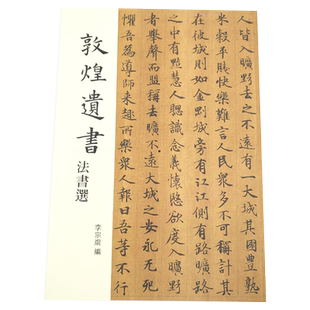 敦煌遺書
法書選
李宗焜 編
人皆入曠野去之不遠有一大城其國豐熟
米穀平賤快樂難言人民眾多不可稱計其
在彼城則如金剛城旁有江江側有路曠路
之中有黠慧人聰識念義懷慈欲度入曠野
者舉聲而稱去曠不遠大城之安永无死
懼吾為導師來趣所樂眾人報曰吾等不行